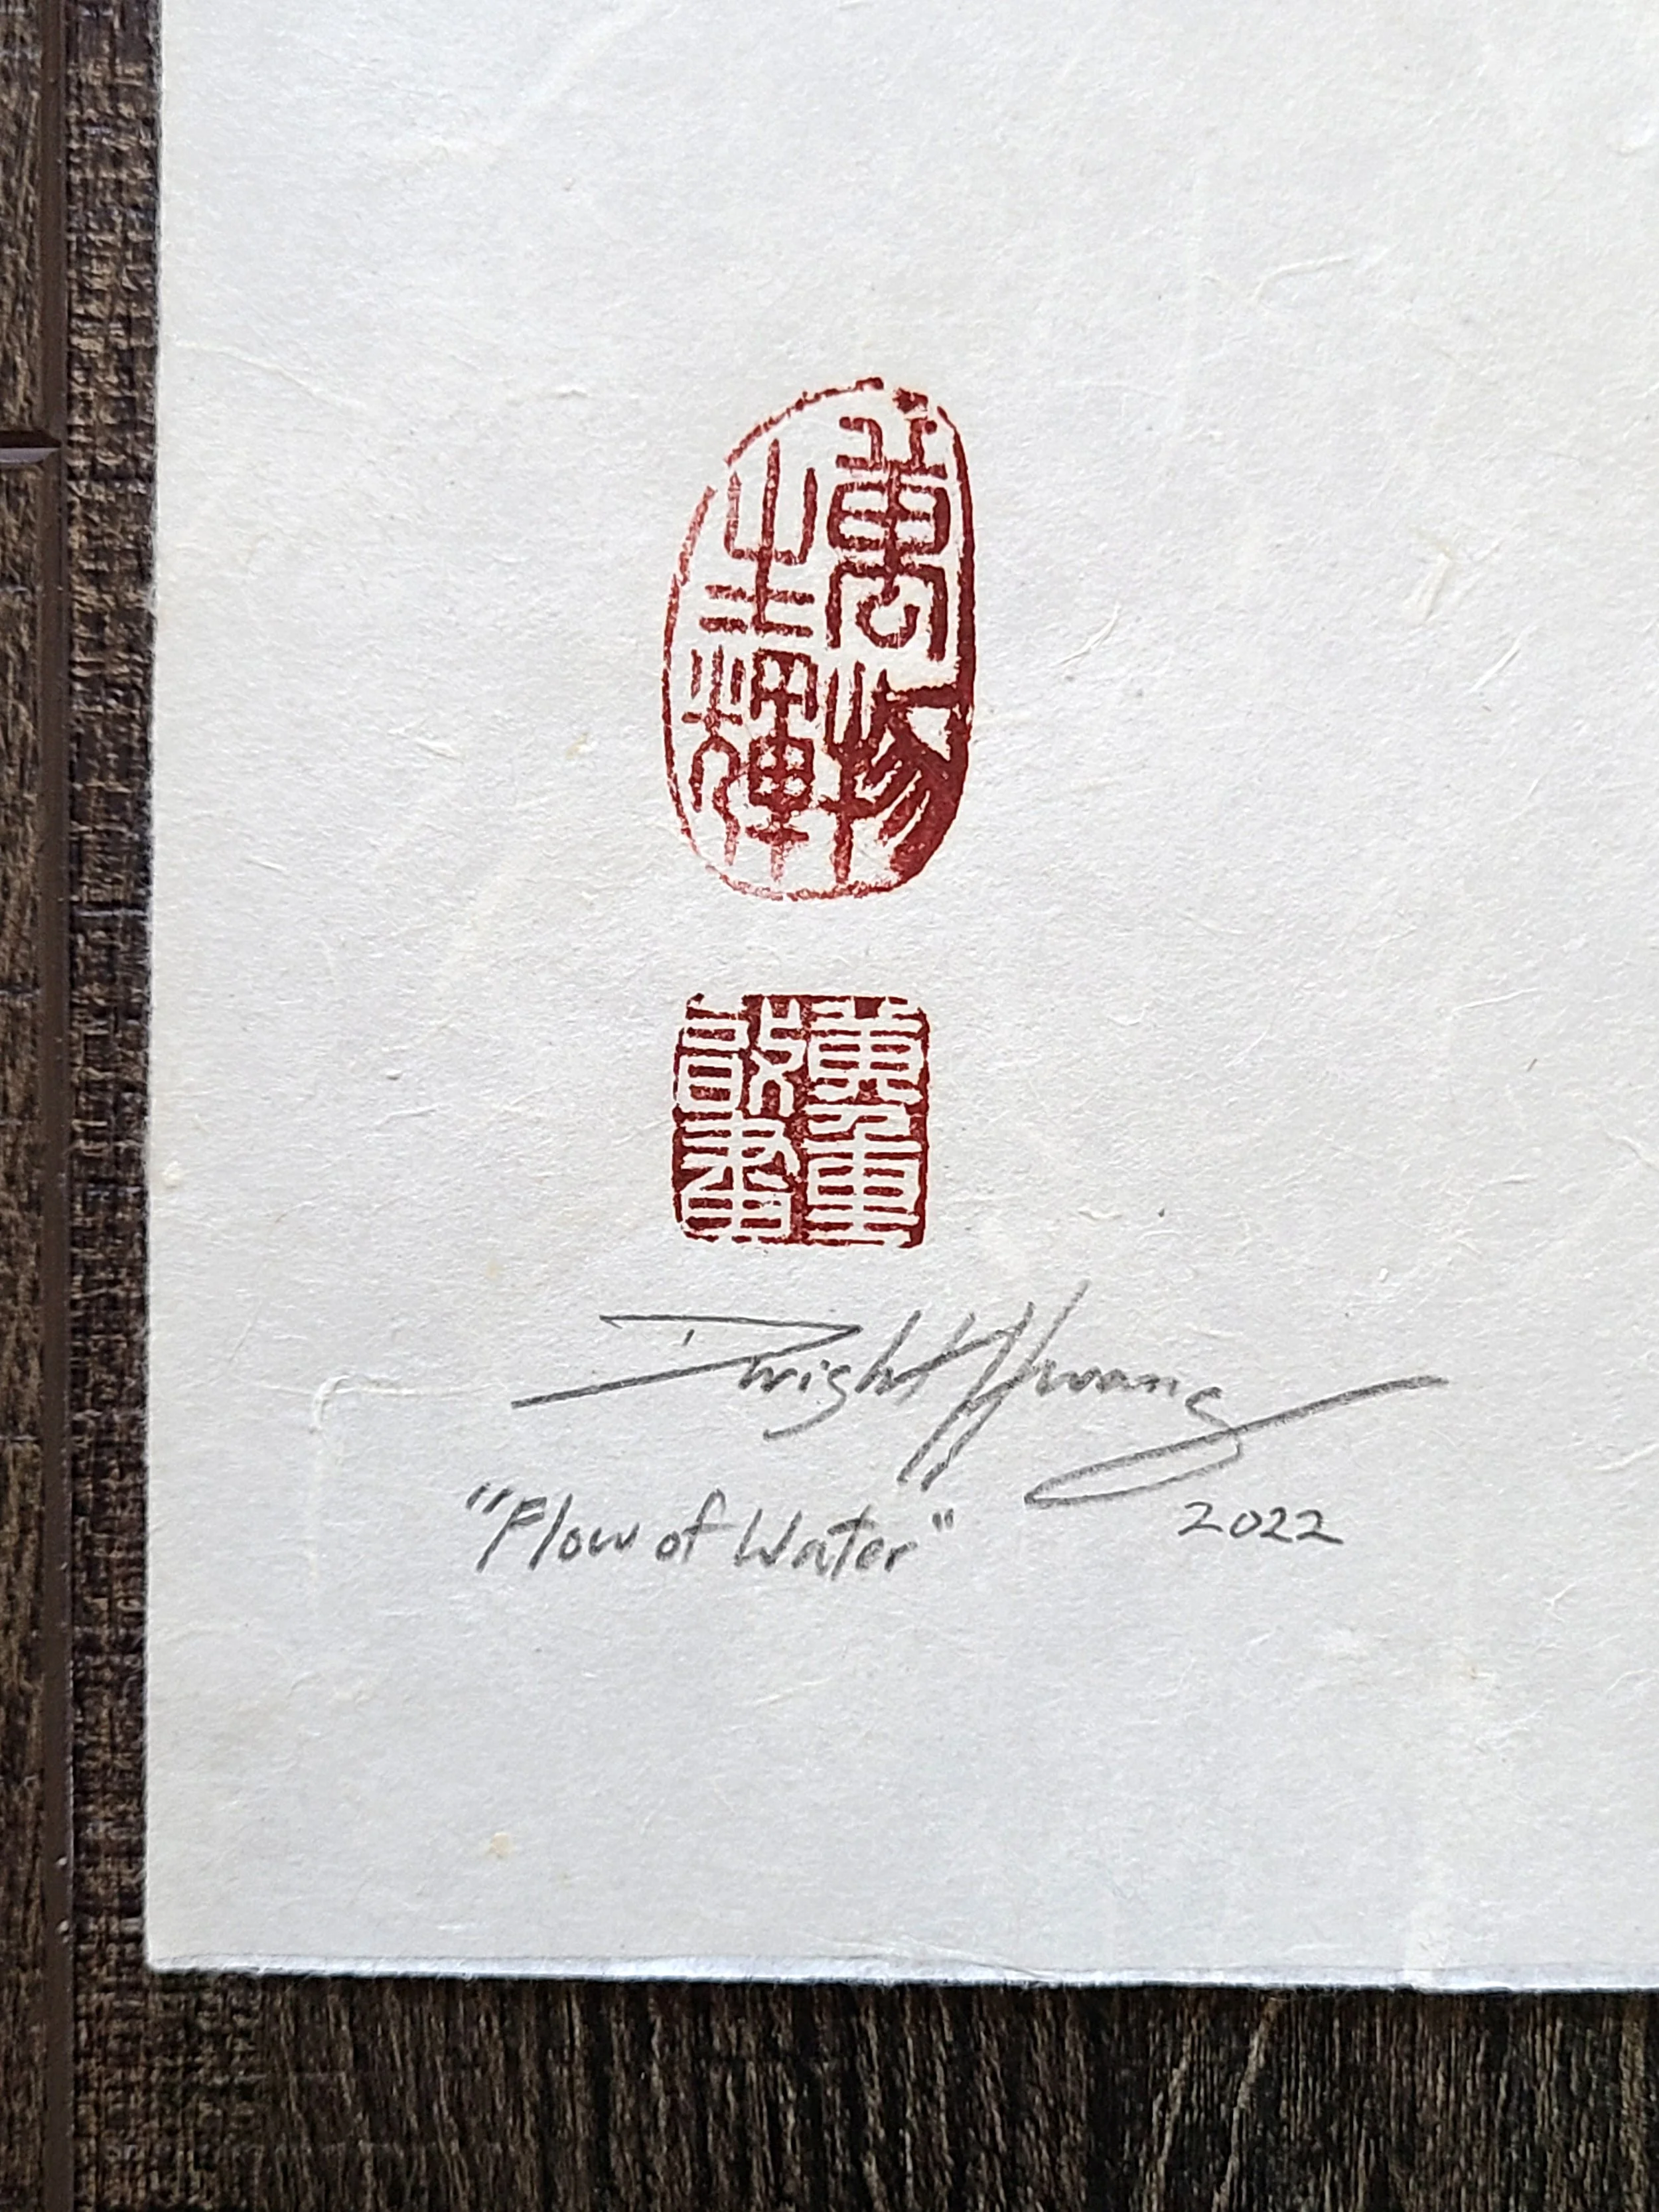 萬物
生輝
Dwight Hwang
"Flow of Water" 2022